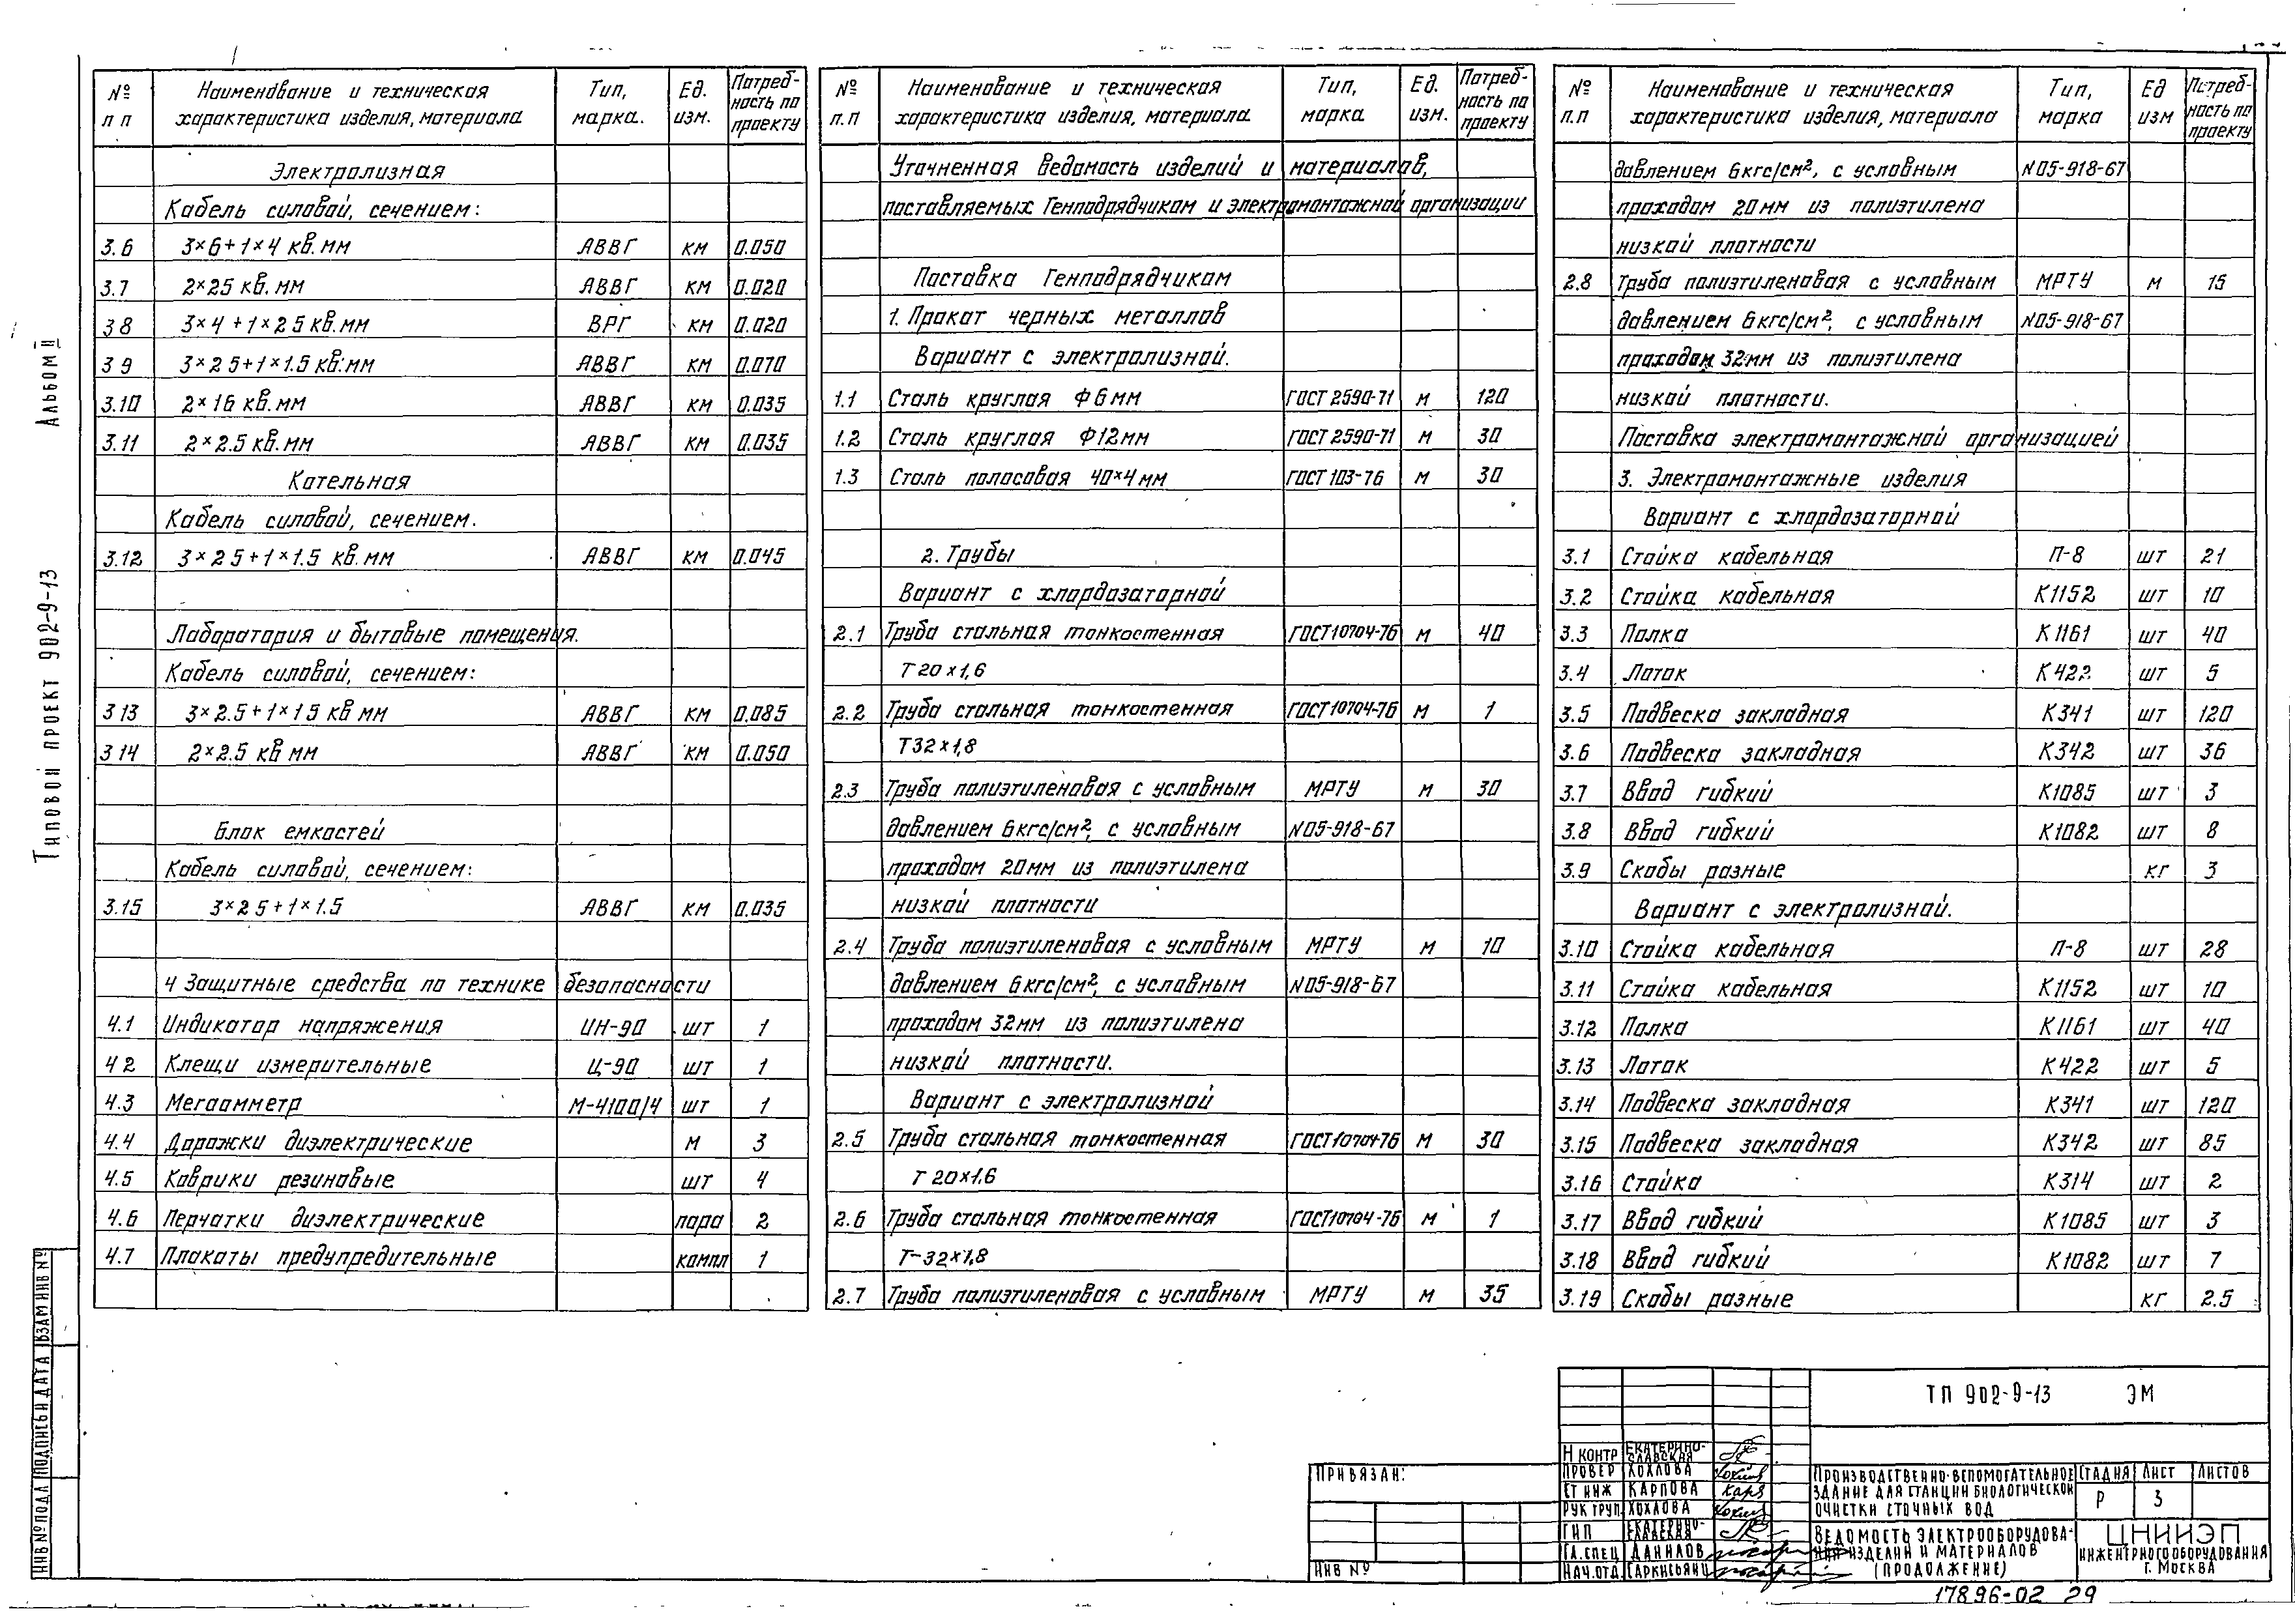 Альбом II
Типовой проект 902-9-13
№ п п | Наименование и техническая характеристика изделия, материала | Тип, марка. | Ед. изм. | Потреб-ность по проекту
Электролизная
Кабель силовой, сечением:
3.6 3×6+1×4 кв.мм АВВГ км 0.050
3.7 2×25 кв.мм АВВГ км 0.020
3 8 3×4+1×2 5 кв.мм ВРГ км 0.020
3 9 3×2 5+1×1.5 кв.мм АВВГ км 0.070
3.10 2×16 кв.мм АВВГ км 0.035
3.11 2×2.5 кв.мм АВВГ км 0.035
Котельная
Кабель силовой, сечением.
3.12 3×2 5+1×1.5 кв.мм АВВГ км 0.045
Лаборатория и бытовые помещения.
Кабель силовой, сечением:
3 13 3×2.5+1×1 5 кв мм АВВГ км 0.085
3 14 2×2.5 кв мм АВВГ км 0.050
Блок емкостей
Кабель силовой, сечением:
3.15 3×2 5+1×1.5 АВВГ км 0.035
4 Защитные средства по технике безопасности
4.1 Индикатор напряжения ИН-90 шт 1
4 2 Клещи измерительные Ц-90 шт 1
4.3 Мегаомметр М-4100/4 шт 1
4.4 Дорожки диэлектрические м 3
4.5 Коврики резиновые шт 4
4.6 Перчатки диэлектрические пара 2
4.7 Плакаты предупредительные компл 1
№ п.п | Наименование и техническая характеристика изделия, материала | Тип, марка | Ед. изм. | Потреб-ность по проекту
Уточненная ведомость изделий и материалов,
поставляемых Генподрядчиком и электромонтажной организации
Поставка Генподрядчиком
1. Прокат черных металлов
Вариант с электролизной.
1.1 Сталь круглая Ф6мм ГОСТ 2590-71 м 120
1.2 Сталь круглая Ф12мм ГОСТ 2590-71 м 30
1.3 Сталь полосовая 40×4мм ГОСТ 103-76 м 30
2. Трубы
Вариант с хлордозаторной
2.1 Труба стальная тонкостенная ГОСТ10704-76 м 40
Т 20×1,6
2.2 Труба стальная тонкостенная ГОСТ10704-76 м 1
Т32×1,8
2.3 Труба полиэтиленовая с условным МРТУ м 30
давлением 6кгс/см², с условным N05-918-67
проходом 20мм из полиэтилена
низкой плотности
2.4 Труба полиэтиленовая с условным МРТУ м 10
давлением 6кгс/см², с условным N05-918-67
проходом 32мм из полиэтилена
низкой плотности.
Вариант с электролизной
2.5 Труба стальная тонкостенная ГОСТ10704-76 м 30
Т 20×1,6
2.6 Труба стальная тонкостенная ГОСТ10704-76 м 1
Т-32×1,8
2.7 Труба полиэтиленовая с условным МРТУ м 35
№ п.п | Наименование и техническая характеристика изделия, материала | Тип, марка | Ед изм | Потреб-ность по проекту
давлением 6кгс/см², с условным N05-918-67
проходом 20мм из полиэтилена
низкой плотности
2.8 Труба полиэтиленовая с условным МРТУ м 15
давлением 6кгс/см², с условным N05-918-67
проходом 32мм из полиэтилена
низкой плотности.
Поставка электромонтажной организацией
3. Электромонтажные изделия
Вариант с хлордозаторной
3.1 Стойка кабельная П-8 шт 21
3.2 Стойка кабельная К1152 шт 10
3.3 Полка К1161 шт 40
3.4 Лоток К422 шт 5
3.5 Подвеска закладная К341 шт 120
3.6 Подвеска закладная К342 шт 36
3.7 Ввод гибкий К1085 шт 3
3.8 Ввод гибкий К1082 шт 8
3.9 Скобы разные кг 3
Вариант с электролизной.
3.10 Стойка кабельная П-8 шт 28
3.11 Стойка кабельная К1152 шт 10
3.12 Полка К1161 шт 40
3.13 Лоток К422 шт 5
3.14 Подвеска закладная К341 шт 120
3.15 Подвеска закладная К342 шт 85
3.16 Стойка К314 шт 2
3.17 Ввод гибкий К1085 шт 3
3.18 Ввод гибкий К1082 шт 7
3.19 Скобы разные кг 2.5
Инв № подл Подпись и дата Взам инв №
Привязан:
Инв №
ТП 902-9-13 ЭМ
Н контр Екатерино-славская
Провер Хохлова
Ст инж Карпова
Рук груп. Хохлова
ГИП Екатерино-славская
Гл. спец Данилов
Нач. отд Саркисьянц
Производственно-вспомогательное
здание для станции биологической
очистки сточных вод
Стадия Лист Листов
Р 3
Ведомость электрооборудова-
ния изделий и материалов
(продолжение)
ЦНИИЭП
инженерного оборудования
г. Москва
17896-02 29